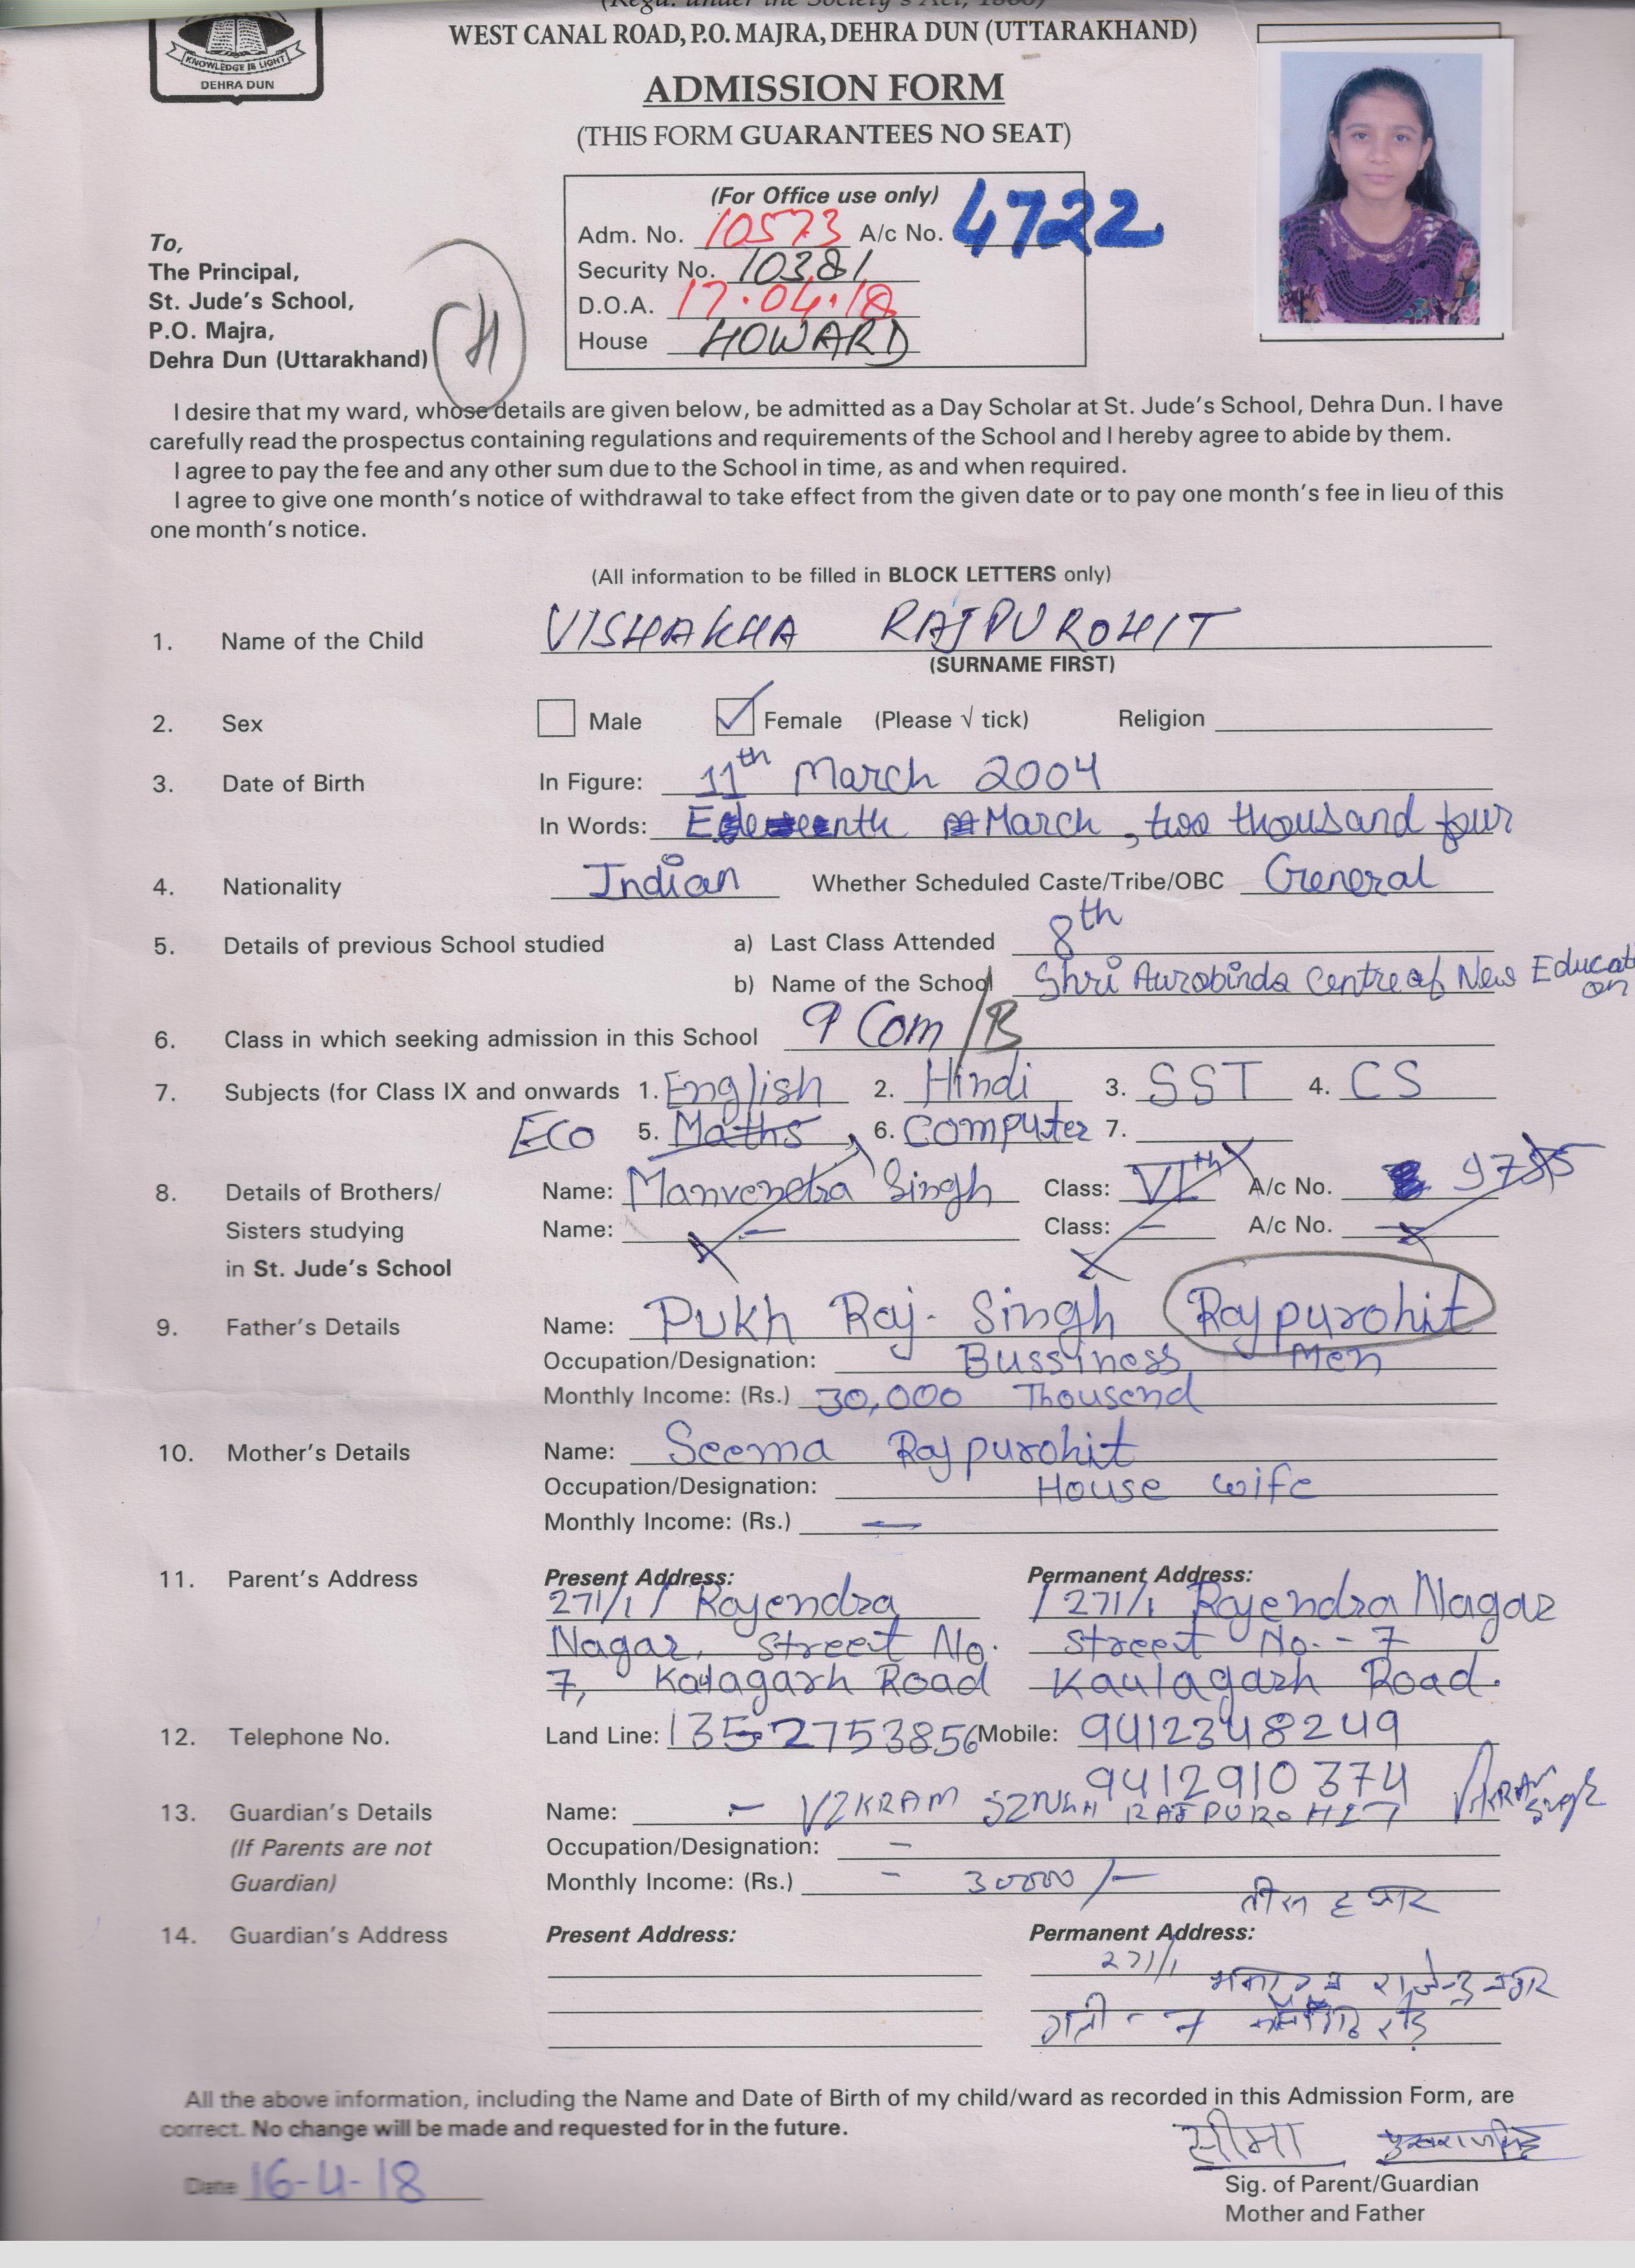 WEST CANAL ROAD, P.O. MAJRA, DEHRA DUN (UTTARAKHAND)
KNOWLEDGE IS LIGHT
DEHRA DUN
ADMISSION FORM
(THIS FORM GUARANTEES NO SEAT)
(For Office use only)
Adm. No. 10573 A/c No. 4722
Security No. 10381
D.O.A. 17.04.18
House HOWARD
To,
The Principal,
St. Jude's School,
P.O. Majra,
Dehra Dun (Uttarakhand)
H
I desire that my ward, whose details are given below, be admitted as a Day Scholar at St. Jude's School, Dehra Dun. I have
carefully read the prospectus containing regulations and requirements of the School and I hereby agree to abide by them.
I agree to pay the fee and any other sum due to the School in time, as and when required.
I agree to give one month's notice of withdrawal to take effect from the given date or to pay one month's fee in lieu of this
one month's notice.
(All information to be filled in BLOCK LETTERS only)
1. Name of the Child VISHAKHA RAJPUROHIT
(SURNAME FIRST)
2. Sex Male Female (Please √ tick) Religion
3. Date of Birth In Figure: 11th March 2004
In Words: March, two thousand four
4. Nationality Indian Whether Scheduled Caste/Tribe/OBC General
5. Details of previous School studied a) Last Class Attended 8th
b) Name of the School Shri Aurobindo Centre of New Education
6. Class in which seeking admission in this School 9 Com/B
7. Subjects (for Class IX and onwards 1. English 2. Hindi 3. SST 4. CS
Eco 5. Maths 6. Computer 7.
8. Details of Brothers/ Name: Manvendra Singh Class: VIth A/c No. 9785
Sisters studying Name: - Class: - A/c No.
in St. Jude's School
9. Father's Details Name: Pukh Raj. Singh Rajpurohit
Occupation/Designation: Bussiness Men
Monthly Income: (Rs.) 30,000 Thousend
10. Mother's Details Name: Seema Rajpurohit
Occupation/Designation: House wife
Monthly Income: (Rs.) —
11. Parent's Address Present Address: Permanent Address:
271/1 / Rajendra / 271/1 Rajendra Nagar
Nagar, Street No. Street No. - 7
7, Kaulagarh Road Kaulagarh Road.
12. Telephone No. Land Line: 1352753856 Mobile: 9412348249
9412910374
13. Guardian's Details Name: - VIKRAM SINGH RAJPUROHIT Vikram Singh
(If Parents are not Occupation/Designation: -
Guardian) Monthly Income: (Rs.) - 30000/-
तीस हजार
14. Guardian's Address Present Address: Permanent Address:
271/1 राजेन्द्र नगर
गली - 7 रोड
All the above information, including the Name and Date of Birth of my child/ward as recorded in this Admission Form, are
correct. No change will be made and requested for in the future.
सीमा पुखराजसिंह
Date 16-4-18
Sig. of Parent/Guardian
Mother and Father